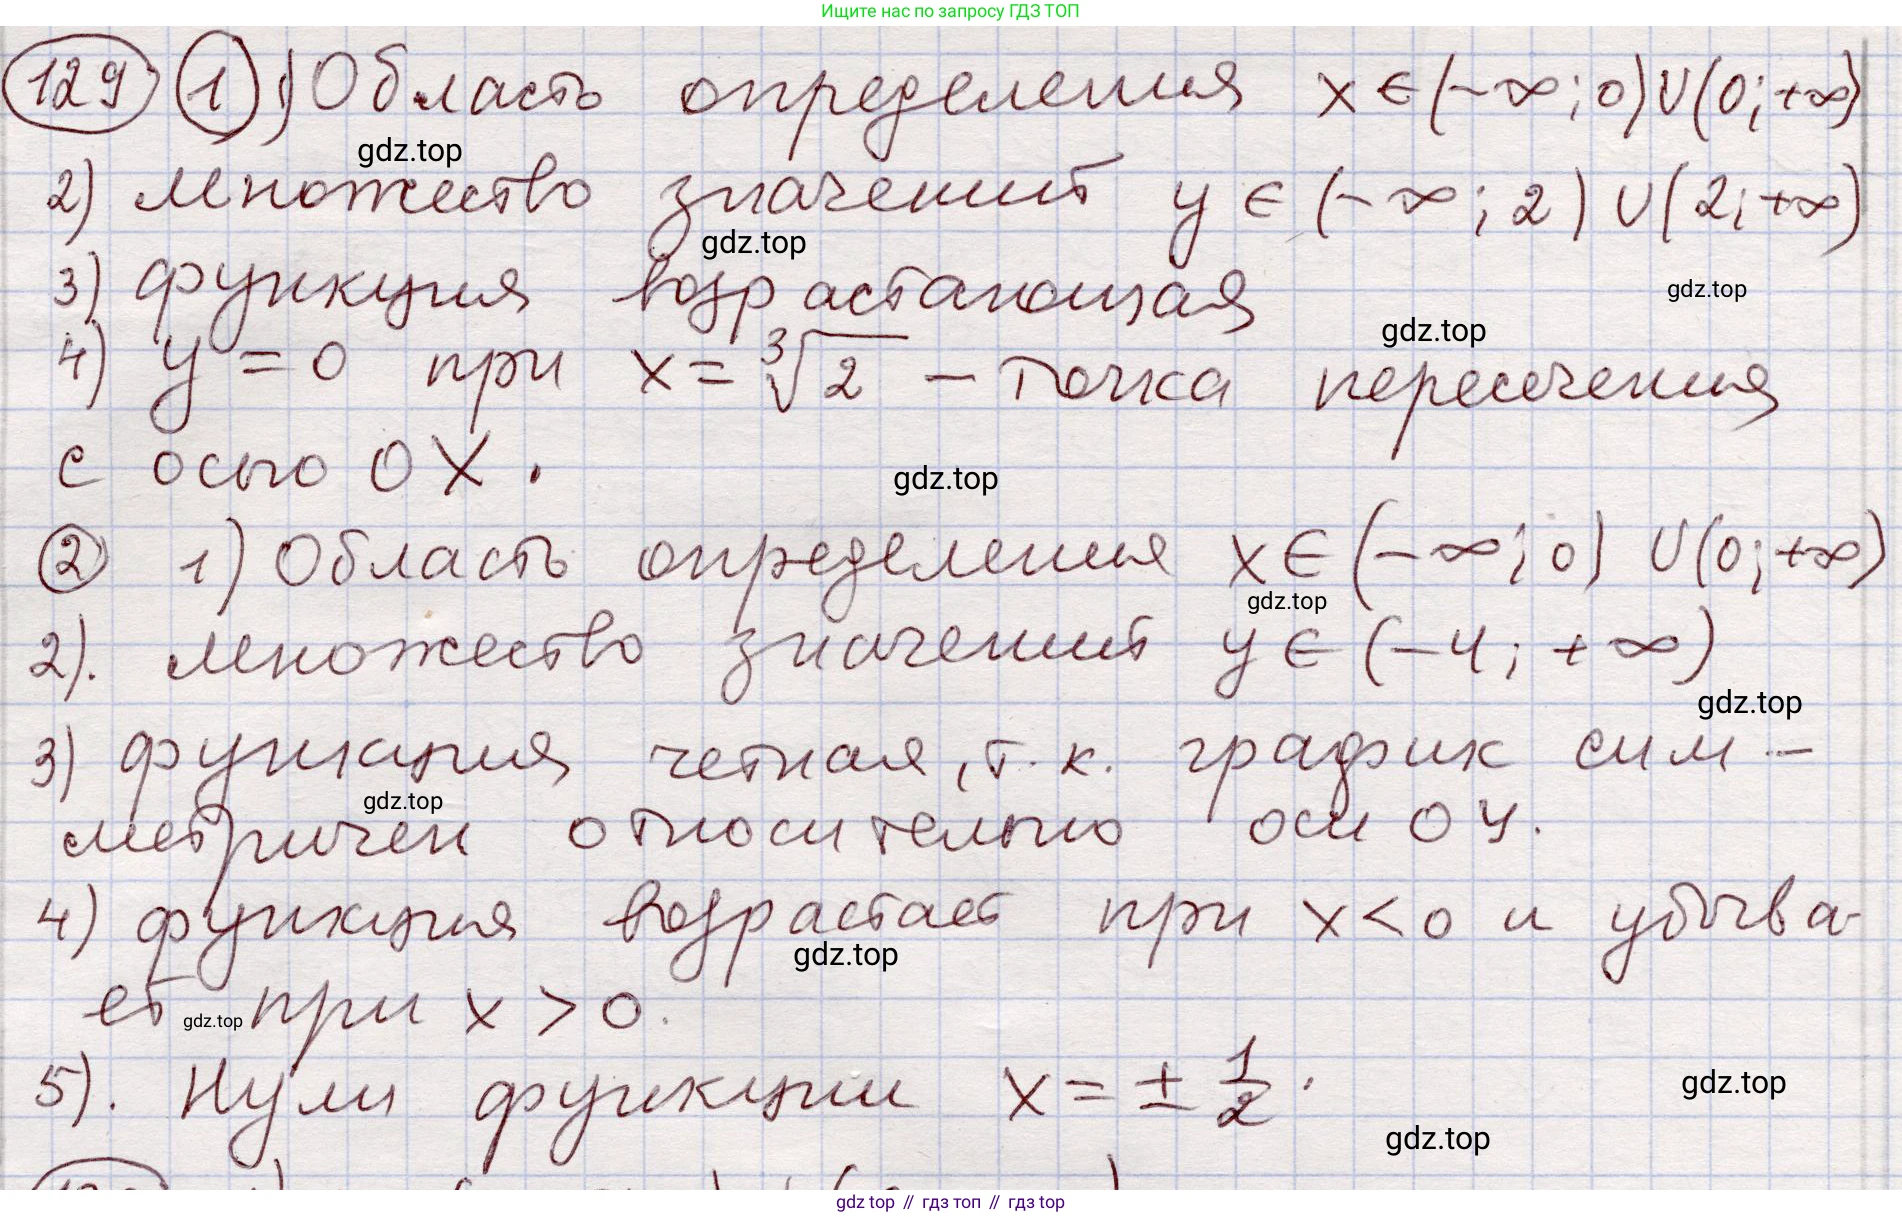 Ищите нас по запросу ГДЗ ТОП
129 1 1) Область определения x ∈ (-∞; 0) ∪ (0; +∞)
gdz.top
2) множество значений y ∈ (-∞; 2) ∪ (2; +∞)
gdz.top
3) функция возрастающая
gdz.top
gdz.top
4) y = 0 при x = ∛2 – точка пересечения
с осью OX.
gdz.top
2 1) Область определения x ∈ (-∞; 0) ∪ (0; +∞)
gdz.top
2). множество значений y ∈ (-4; +∞)
gdz.top
3) функция четная, т.к. график сим-
gdz.top
метричен относительно оси OY.
4) функция возрастает при x < 0 и убыва-
gdz.top
ет при x > 0.
gdz.top
5). Нули функции x = ± 1/2.
gdz.top
gdz.top
gdz top // гдз топ // гдз top